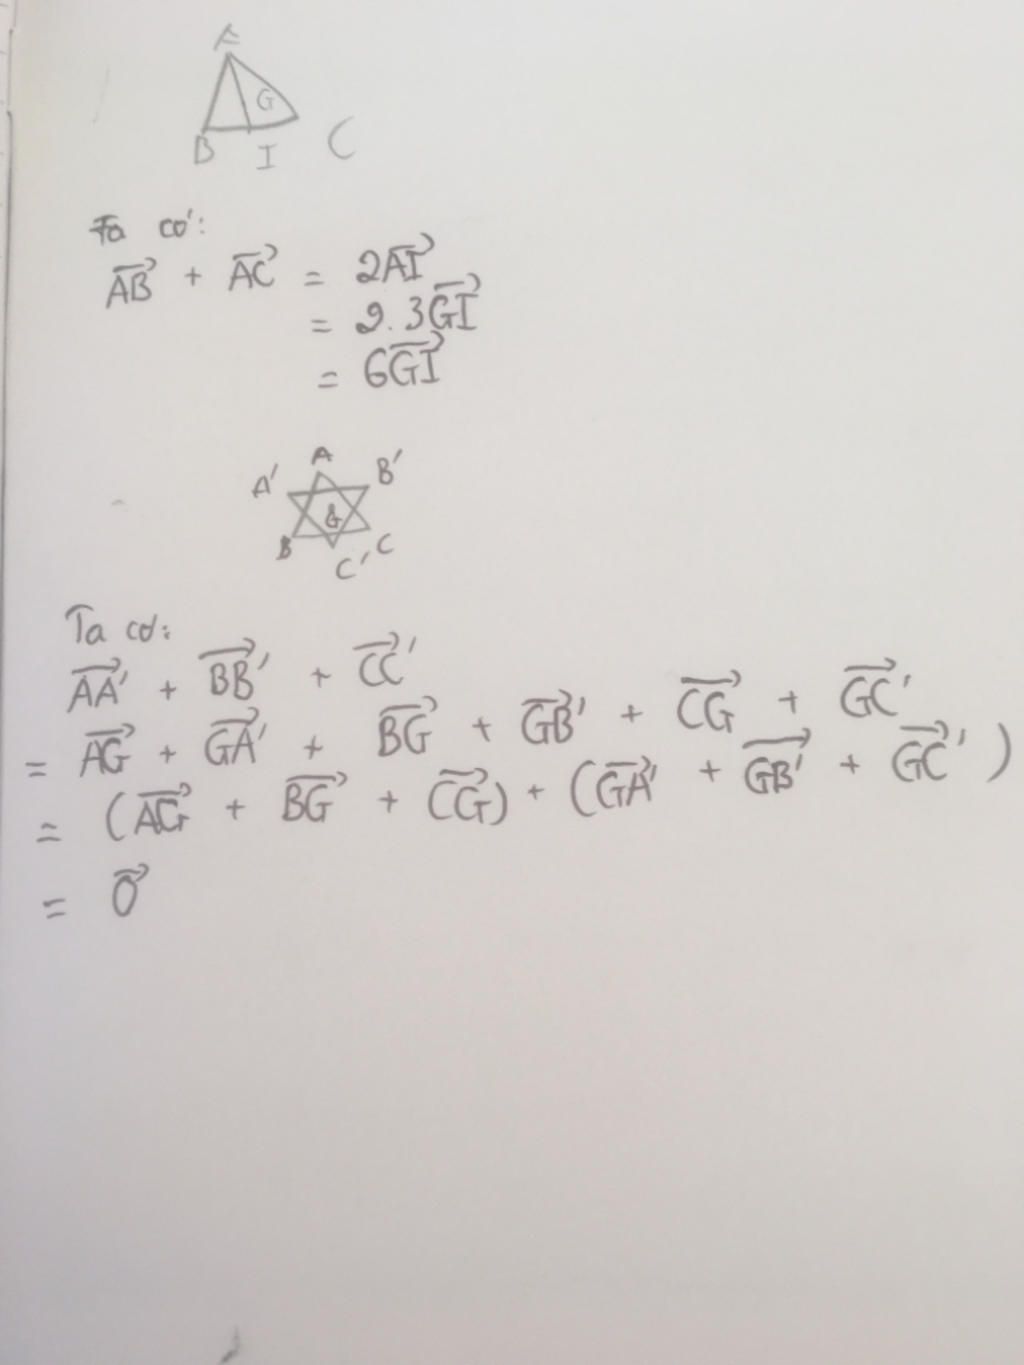 A
G
B I C
Ta có:
AB⃗ + AC⃗ = 2AI⃗
= 2.3GI⃗
= 6GI⃗
A' A B'
G
B C' C
Ta có:
AA'⃗ + BB'⃗ + CC'⃗
= AG⃗ + GA'⃗ + BG⃗ + GB'⃗ + CG⃗ + GC'⃗
= (AG⃗ + BG⃗ + CG⃗) + (GA'⃗ + GB'⃗ + GC'⃗)
= 0⃗